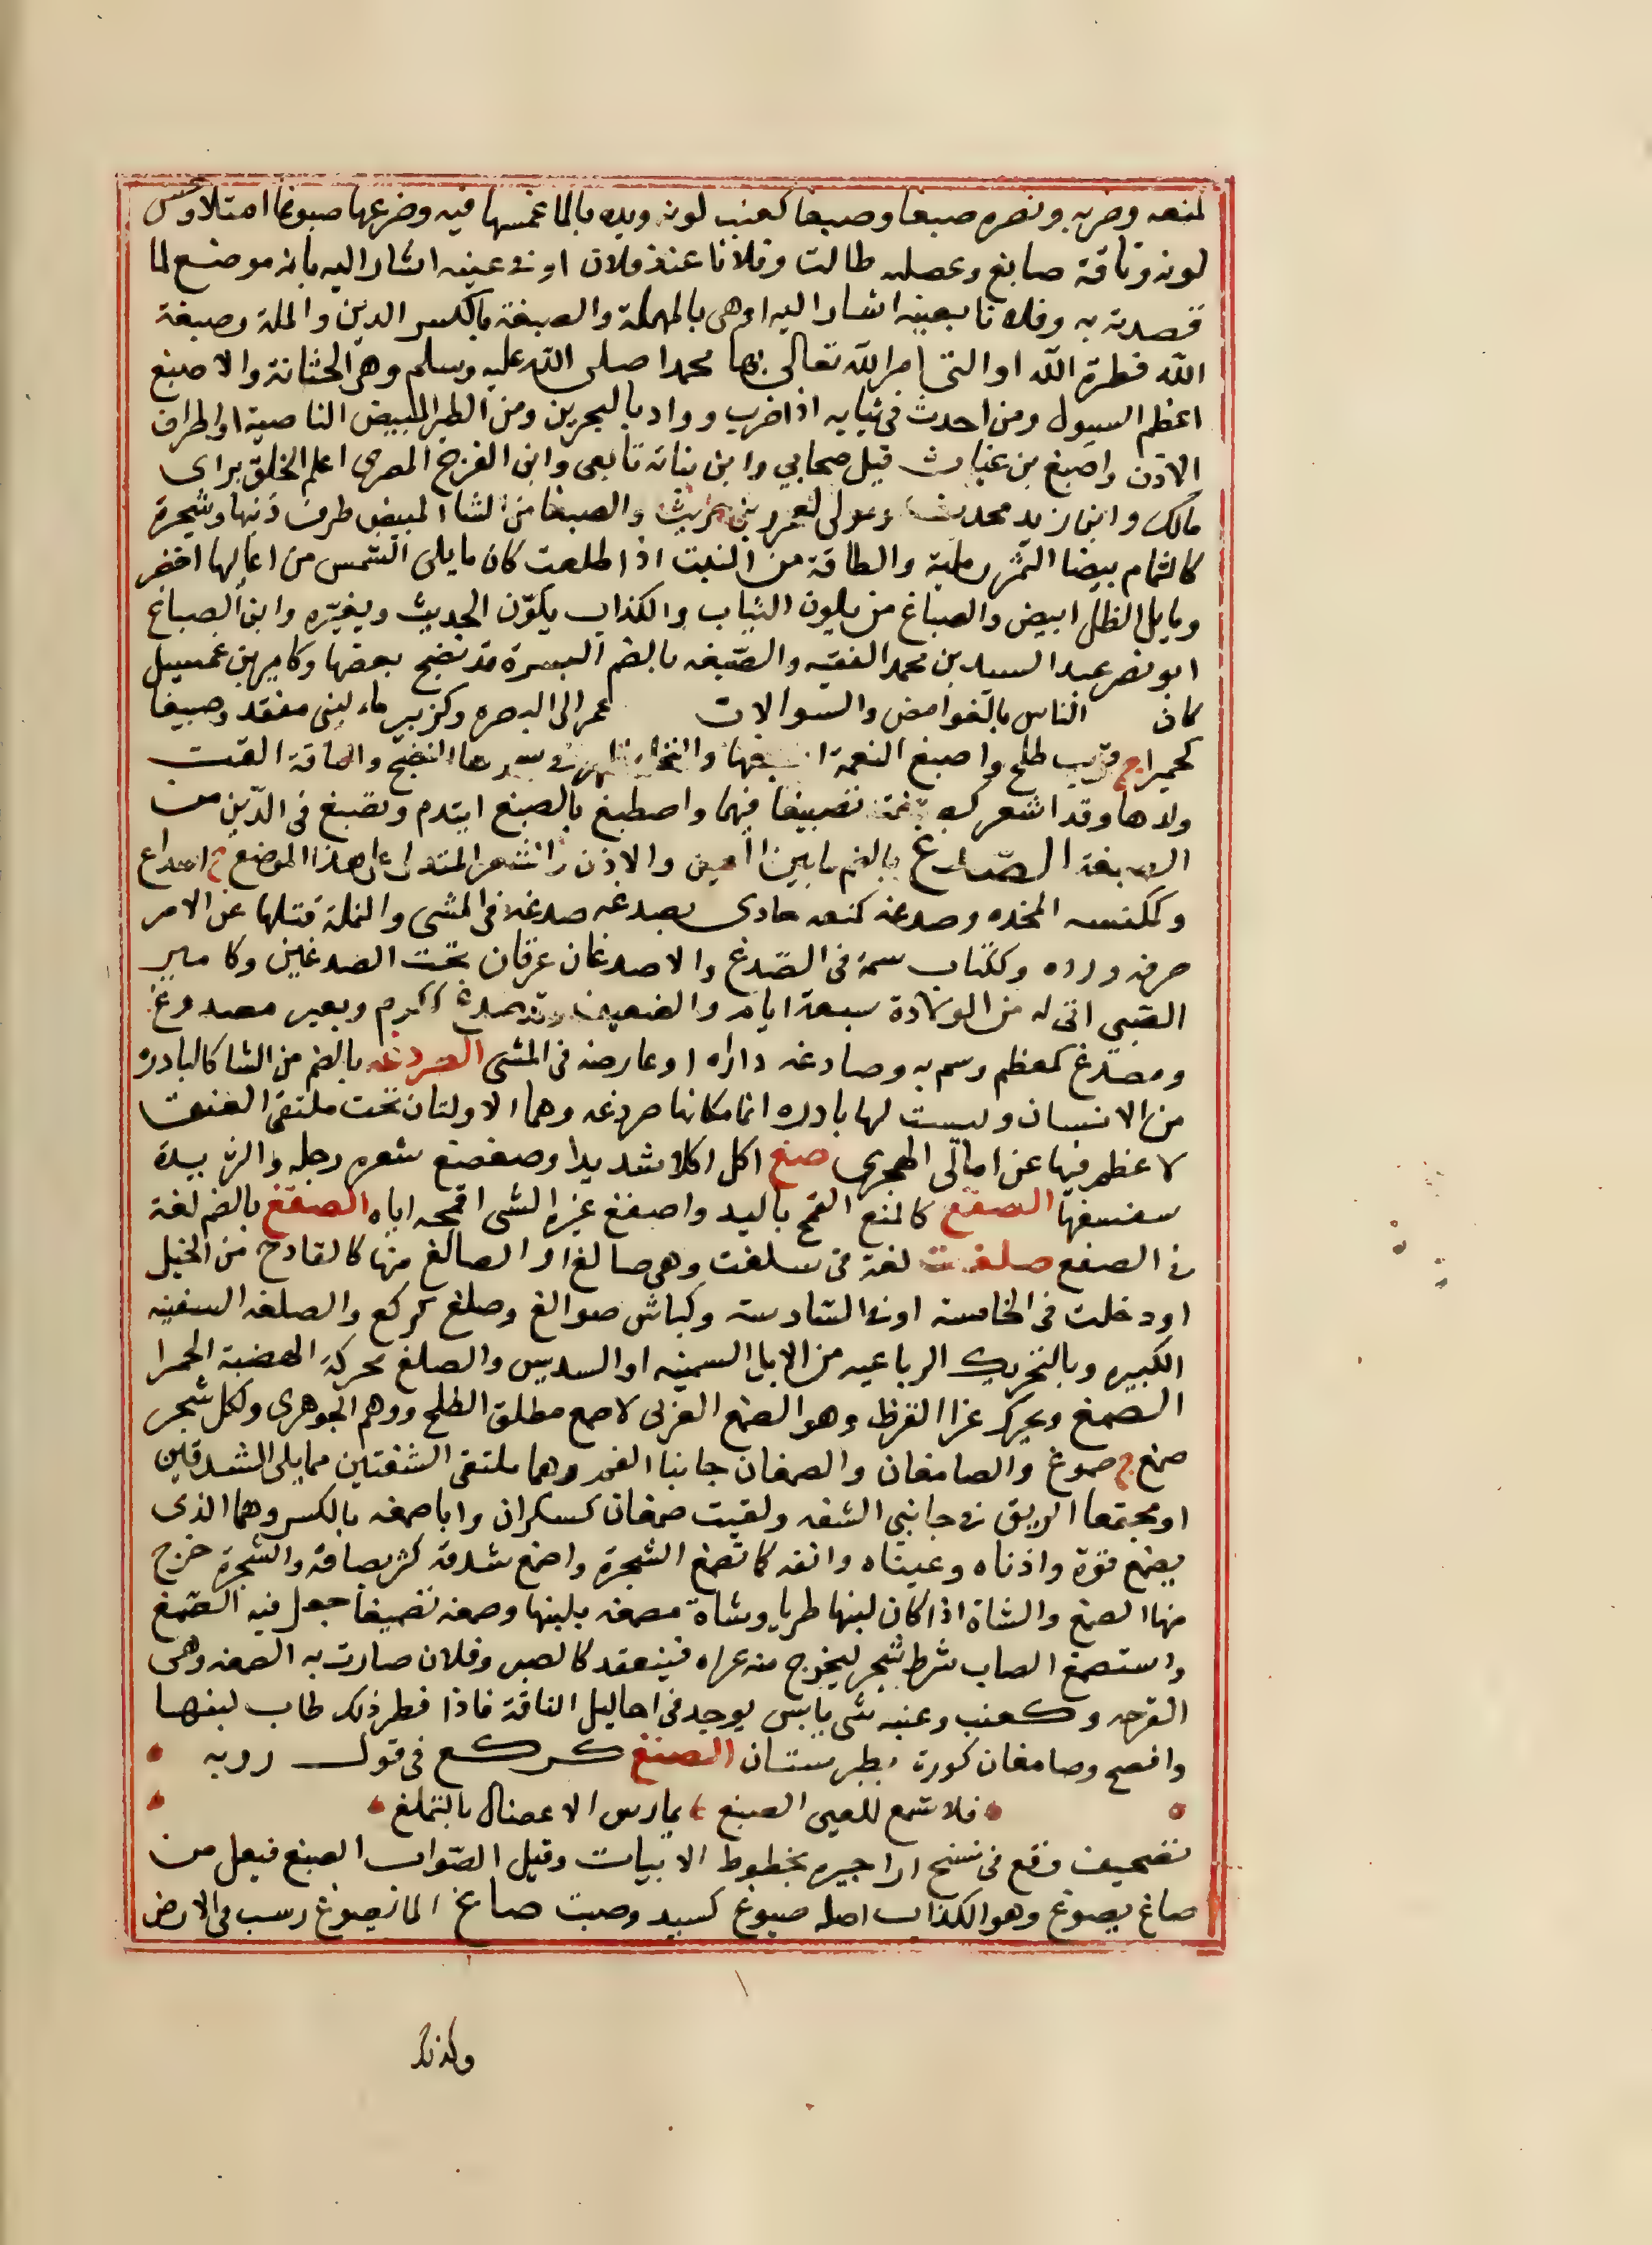 لمنعه وضربه ونصره صبغا وصبغا كعنب لونه ويده بالما غمسها فيه وضرعها صبوغا امتلا وحسن
لونه وناقة صابغ وعضله طالت وفلانا عند فلان او في عينه اشار اليه بانه موضع لما
قصدته به وفلانا بعينه اشار اليه او هي بالمهملة والصبغة بالكسر الدين والملة وصبغة
الله فطرة الله او التي امر الله تعالى بها محمدا صلى الله عليه وسلم وهي الختانة والاصبغ
اعظم السيول ومن احدث في ثيابه اذا ضرب وواد بالبحرين ومن الطير المبيض الناصية او اطراف
الاذن واصبغ بن غياث قيل صحابي وابن نباته تابعي وابن الفرج المصري اعلم الخلق براى
مالك وابن زيد محدث ومولى لعمرو بن حريث والصبغا من الشا المبيض طرف ذنبها وشجرة
كالثمام بيضا الثمر رملية والطاقة من النبت اذا طلعت كان ما يلى الشمس من اعاليها اخضر
وما يلى الظل ابيض والصباغ من يلون الثياب والكذاب يكوّن الحديث ويغيّره وابن الصباغ
ابو نصر عبد السيد بن محمد الفقيه والصّبغه بالضم البسرة قد نضج بعضها وكامير بن عسيل
كان الناس بالغوامض والسوالات عمر الى البصره وكزبير ماء لبنى منقذ وصبيغا
كحميرا ع قريب طلح واصبغ النعمة اسبغها والنخلة ظهر في بسرها النضج والناقة القت
ولدها وقد اشعر كصبغت تصبيغا فيهما واصطبغ بالصبغ ايتدم وتصبغ في الدّين من
الصبغة الصّدغ بالضم ما بين العين والاذن والشعر المتدلى على هذا الموضع ج اصداغ
وكمكنسه المخده وصدغه كمنعه حاذى بصدغه صدغه في المشى والنملة قتلها عن الامر
صرفه ورده وككتاب سمة في الصّدغ والاصدغان عرقان تحت الصدغين وكامير
الصّبي اتى له من الولادة سبعة ايام والضعيف وقد صدغ ككرم وبعير مصدوغ
ومصدّغ كمعظم وسم به وصادغه داراه او عارضه في المشى الصردغه بالضم من الشا كالبادره
من الانسان وليست لها بادره انما مكانها صردغه وهما الاولتان تحت ملتقى العنق
لا عظم فيها عن امالى الهجرى صغ اكل اكلا شديدا وصغصغ شعره رجله والثريدة
سغسغها الصفغ كالمنع القمح باليد واصفغ غيره الشى اقمحه اياه الصقغ بالضم لغة
في الصقع صلغت لغة في سلغت وهى صالغ او الصالغ منها كالقارح من الخيل
او دخلت في الخامسة او في السّادسة وكباش صوالغ وصلغ كركع والصلغه السفينه
الكبيره وبالتحريك الرباعيه من الابل السمينه او السديس والصلغ محركة الهضبة الحمرا
الصمغ ويحرك غرا القرظ وهو الصمغ العربى لا صمغ مطلق الطلح ووهم الجوهرى ولكل شجر
صمغ ج صموغ والصامغان والصمغان جانبا الفم وهما ملتقى الشفتين مما يلى الشدقين
او مجتمعا الريق في جانبي الشفه ولقيت صمغان كسكران وابا صمغه بالكسر وهما الذى
يصمغ فوه واذناه وعيناه وانفه كما تصمغ الشجرة واصمغ شدقه كثر بصاقه والشجرة خرج
منها الصمغ والشاة اذا كان لبنها طريا وشاة مصمغه بلبنها وصمغه تصميغا جعل فيه الصّمغ
واستصمغ الصاب شرط شجر ليخرج منه غراه فينعقد كالصبر وفلان صارت به الصمغه وهى
القرحه وكعنب وعنبه شى يابس يوجد في احاليل الناقة فاذا فطر ذلك طاب لبنها
وافصح وصامغان كورة بطبرستان الصنغ كركع في قول روبه
فلا تسمع للعيى الصنغ يمارس الاعضال بالتملغ
تصحيف وقع في نسخ اراجيزه بخطوط الاثبات وقيل الصّواب الصيغ فيعل من
صاغ يصوغ وهو الكذاب اصله صيوغ كسيد وصيت صاغ الما يصوغ رسب في الارض
وكذلك